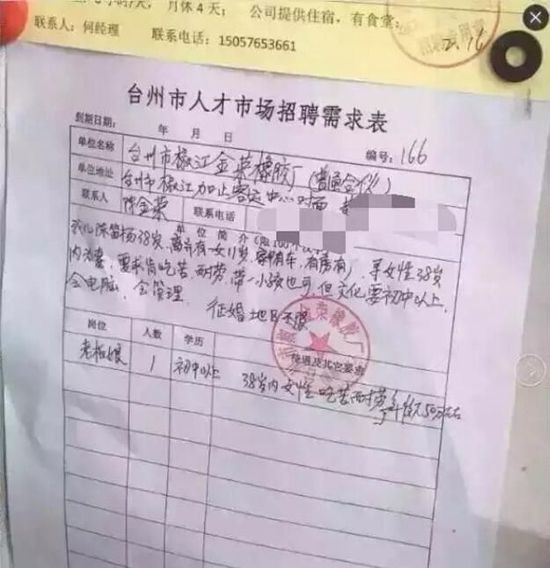 月休4天； 公司提供住宿，有食堂；
联系人：何经理 联系电话：15057653661
2.16
台州市人才市场招聘需求表
到期日期： 年 月 日 编号：166
单位名称 台州市椒江金荣橡胶厂（普通合伙）
单位地址 台州市椒江加止客运中心对面
联系人 陈金荣 联系电话
单位简介（限100个汉字）
38岁，离异有一女11岁，有车，有房有厂，寻女性38岁
内为妻，要求肯吃苦耐劳，带一小孩也可，但文化要初中以上，
会电脑，会管理。 征婚地区不限
岗位 人数 学历 待遇及其它要求
老板娘 1 初中以上 38岁内女性，吃苦耐劳，年收入50万左右